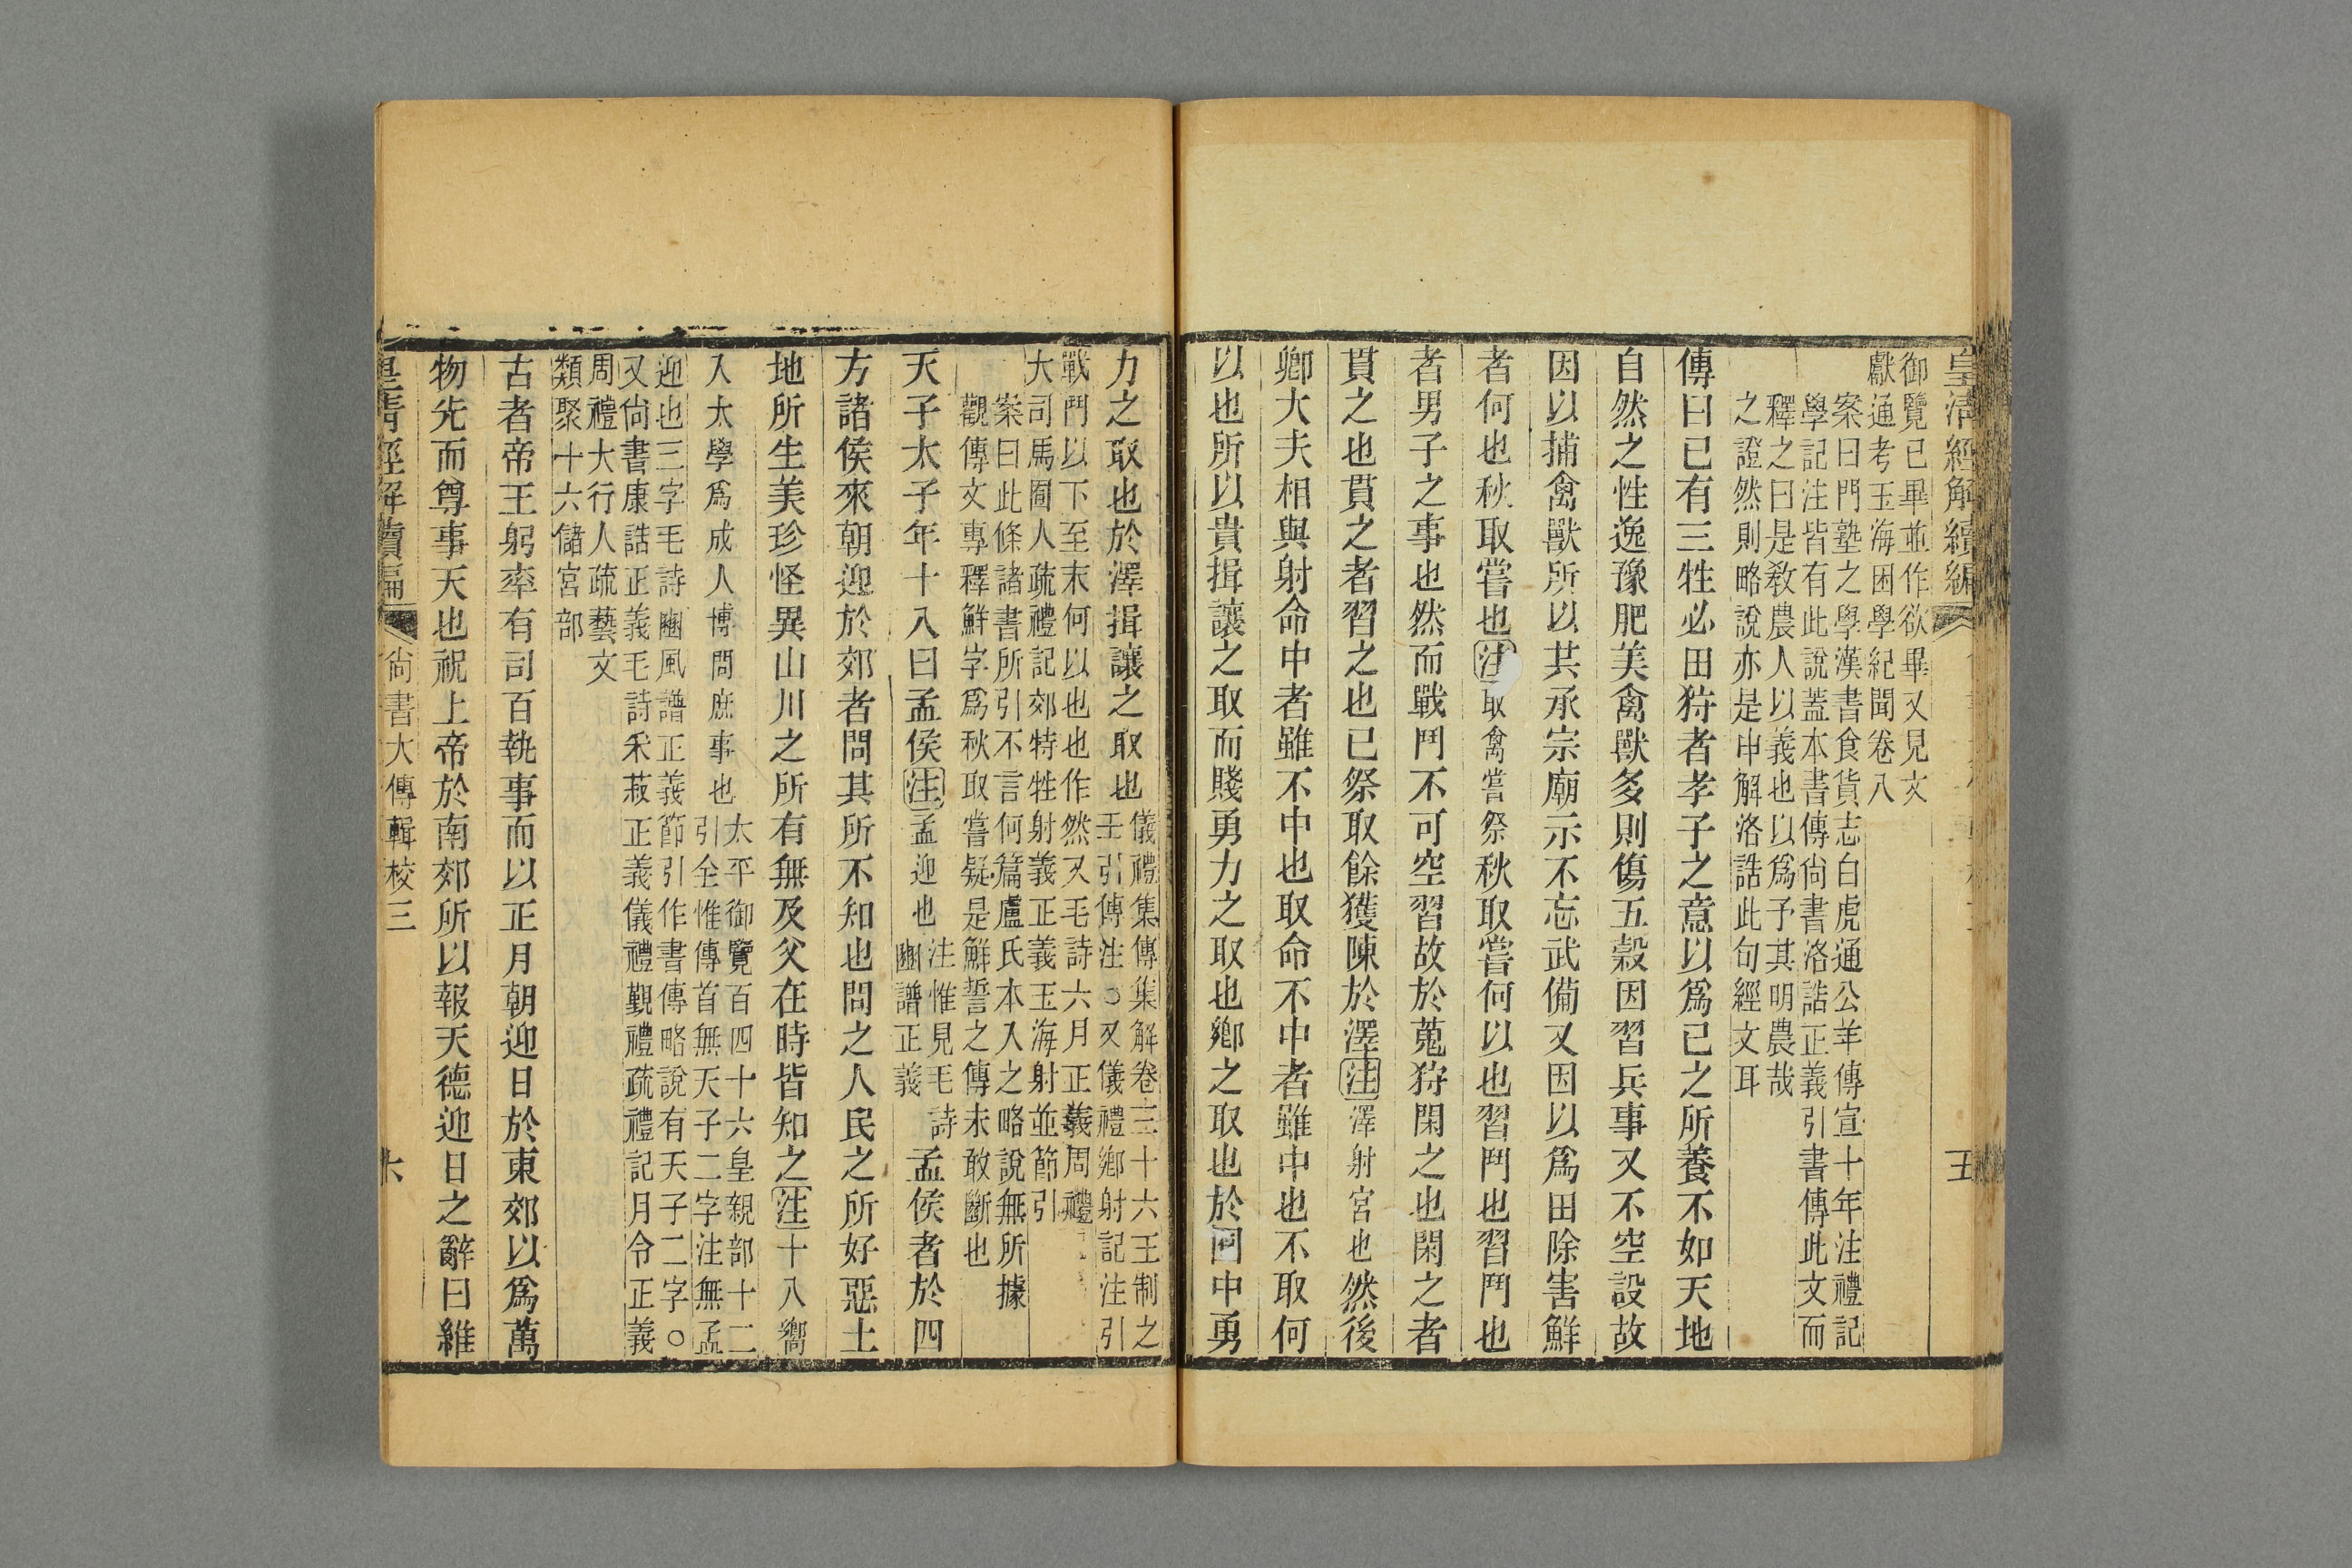 皇淸經解續編
五
御覽已畢並作欲畢又見文
獻通考玉海困學紀聞卷八
案曰門塾之學漢書食貨志白虎通公羊傳宣十年注禮記
學記注皆有此說蓋本書傳尙書洛誥正義引書傳此文而
釋之曰是敎農人以義也以爲予其明農哉
之證然則略說亦是申解洛誥此句經文耳
傳曰已有三牲必田狩者孝子之意以爲已之所養不如天地
自然之性逸豫肥美禽獸多則傷五穀因習兵事又不空設故
因以捕禽獸所以共承宗廟示不忘武備又因以爲田除害鮮
者何也秋取嘗也注取禽嘗祭秋取嘗何以也習鬥也習鬥也
者男子之事也然而戰鬥不可空習故於蒐狩閑之也閑之者
貫之也貫之者習之也已祭取餘獲陳於澤注澤射宮也然後
卿大夫相與射命中者雖不中也取命不中者雖中也不取何
以也所以貴揖讓之取而賤勇力之取也鄉之取也於囿中勇
力之取也於澤揖讓之取也儀禮集傳集解卷三十六王制之
王引傳注○又儀禮鄉射記注引
戰鬥以下至末何以也也作然又毛詩六月正義周禮
大司馬囿人疏禮記郊特牲射義正義玉海射並節引
案曰此條諸書所引不言何篇盧氏本入之略說無所據
觀傳文專釋鮮字爲秋取嘗疑是鮮誓之傳未敢斷也
天子太子年十八曰孟侯注孟迎也注惟見毛詩豳譜正義孟侯者於四
方諸侯來朝迎於郊者問其所不知也問之人民之所好惡土
地所生美珍怪異山川之所有無及父在時皆知之注十八嚮
入大學爲成人博問庶事也太平御覽百四十六皇親部十二
引全惟傳首無天子二字注無孟
迎也三字毛詩豳風譜正義節引作書傳略說有天子二字○
又尙書康誥正義毛詩采菽正義儀禮覲禮疏禮記月令正義
周禮大行人疏藝文
類聚十六儲宮部
古者帝王躬率有司百執事而以正月朝迎日於東郊以爲萬
物先而尊事天也祝上帝於南郊所以報天德迎日之辭曰維
皇淸經解續編 尙書大傳輯校三 六